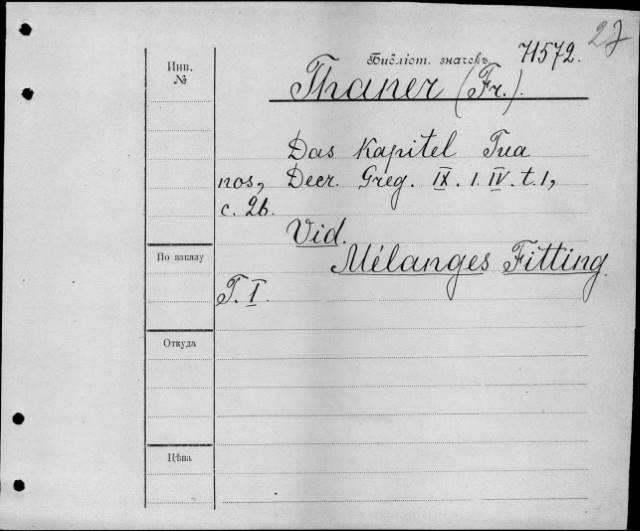 27
Библіот. значекъ H572.
Инв.
№
Thaner (Fr.).
Das Kapitel Tua
nos, Decr. Greg. IX. l. IV. t. 1,
c. 26.
Vid.
Mélanges Fitting.
T. I.
По заказу
Откуда
Цѣна